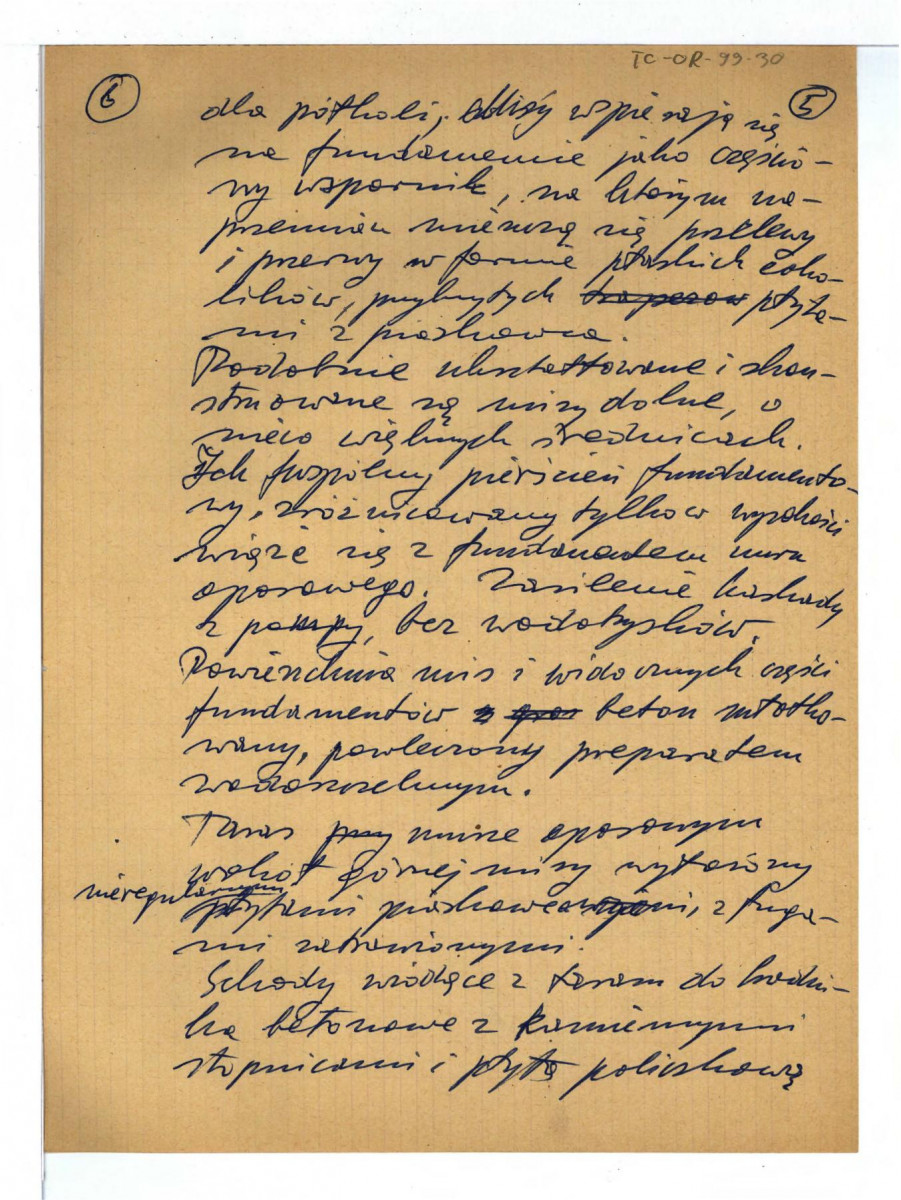 TC-OR-99-30
6
5
dla półkoli, bliży wspierają się
na fundamencie jako części-
wy wspornik, na którym na-
przemian mieszczą się przelewy
i przerwy w formie płaskich coko-
lików, przykrytych płyta-
mi z piaskowca.
Podobnie ukształtowane i skon-
struowane są misy dolne, o
nieco większych średnicach.
Ich wspólny pierścień fundamento-
wy, zróżnicowany tylko w wysokości
wiąże się z fundamentem muru
oporowego. Zasilenie kaskady
z pompy, bez wodotrysków.
Powierzchnia mis i widocznych części
fundamentów beton młotko-
wany, powleczony preparatem
wodoszczelnym.
Taras murze oporowym
wokół górnej misy wyłożony
nieregularnymi
płytami piaskowca, z fuga-
mi zatrawionymi.
Schody wiodące z tarasu do chodni-
ka betonowe z kamiennymi
stopnicami i płytą policzkową